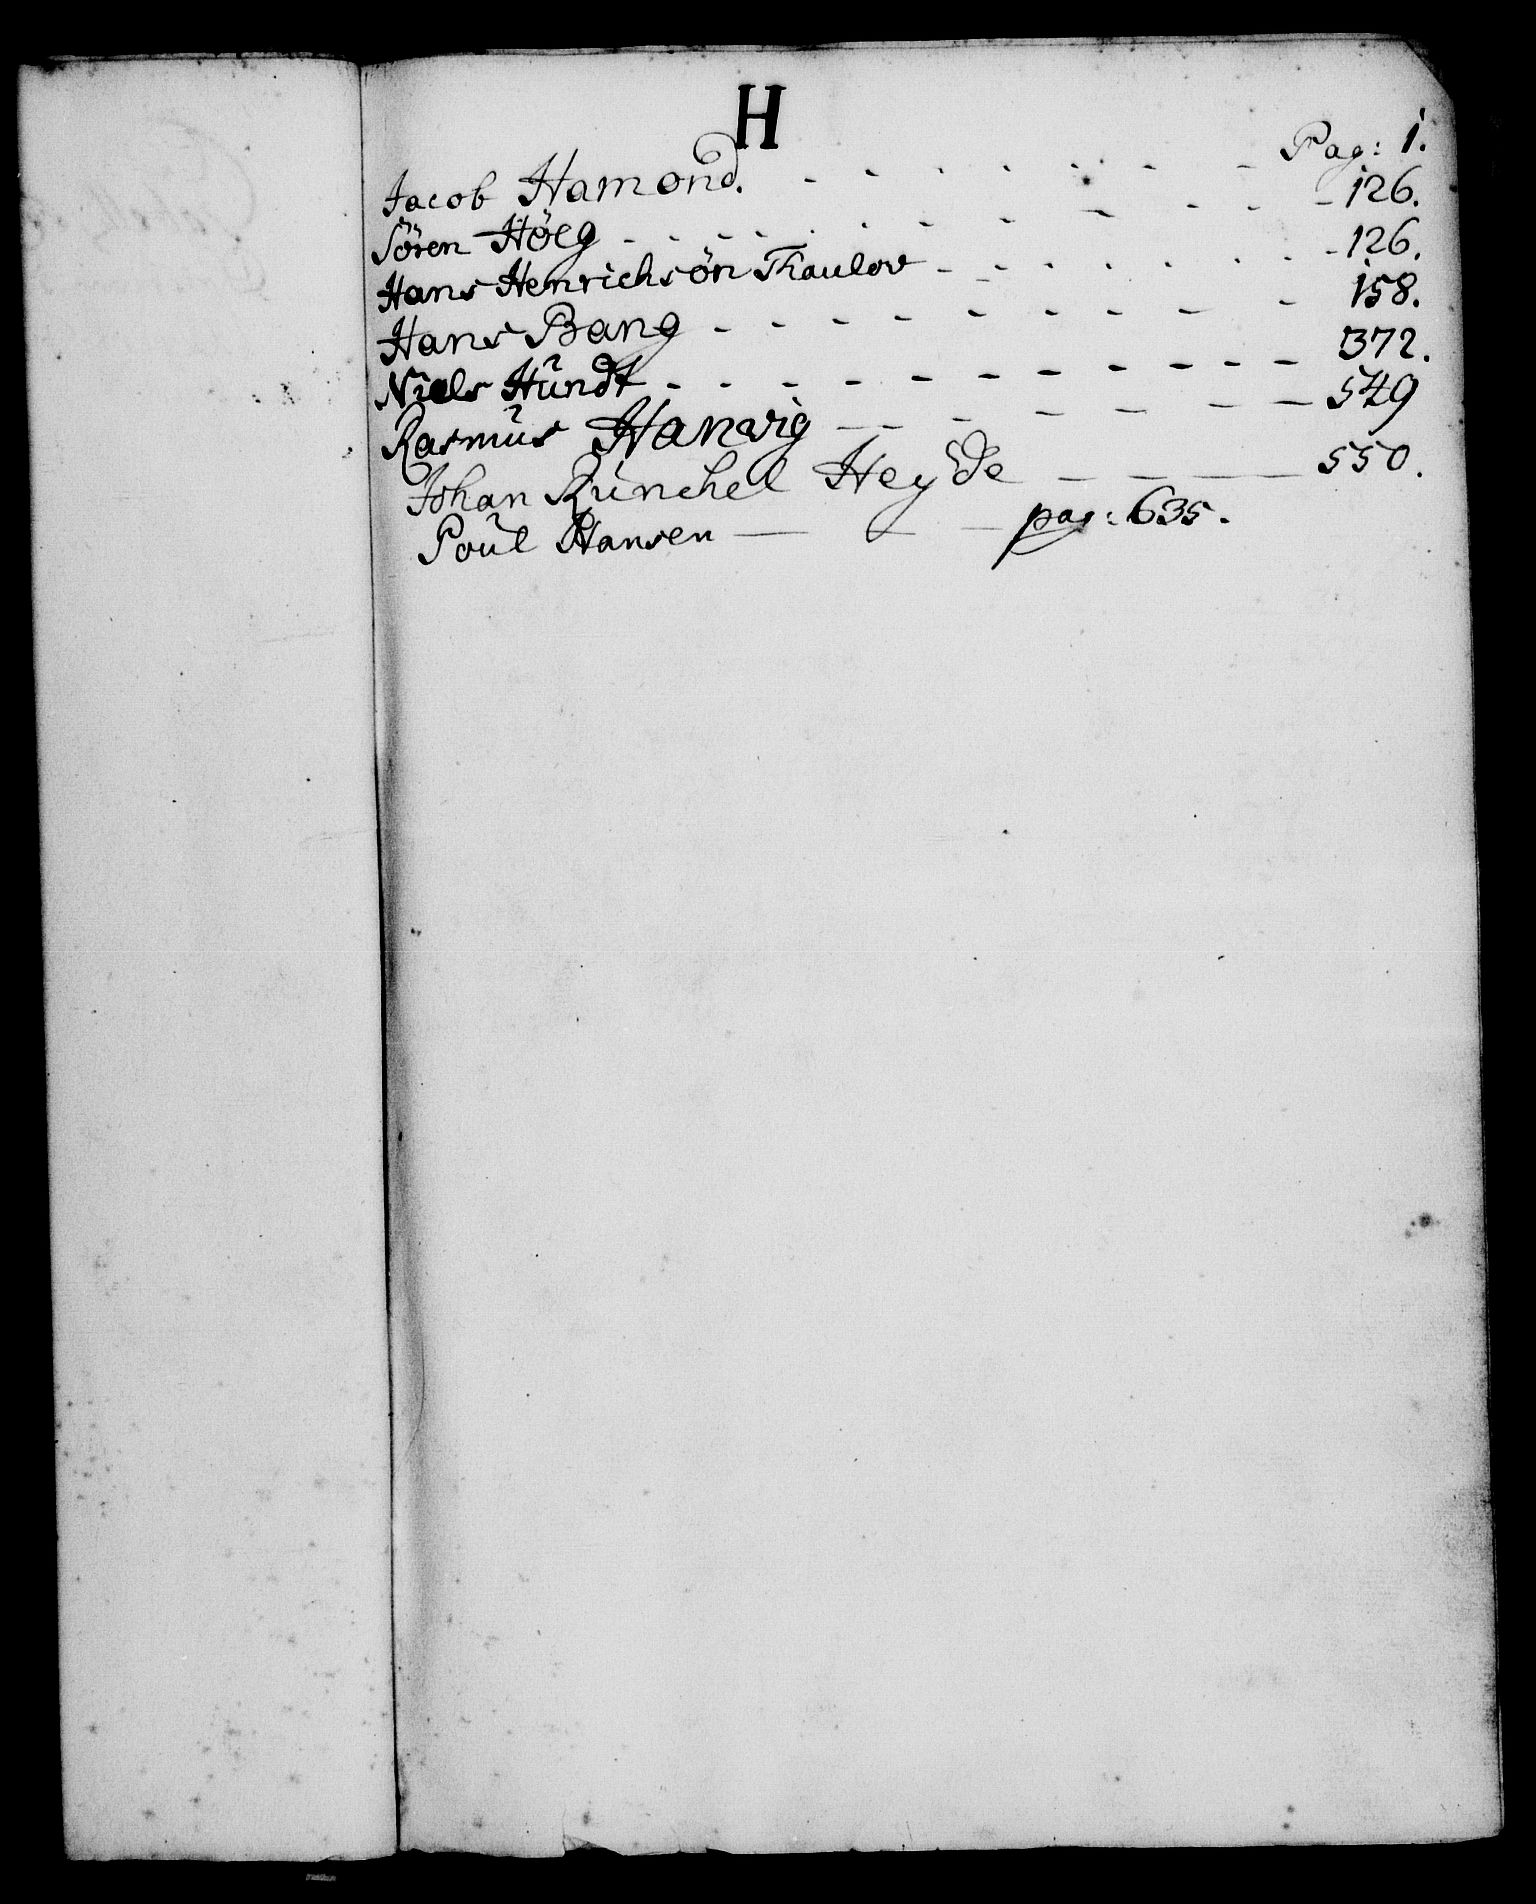 H
Jacob Hamond. - - - - - - - - Pag: 1.
Sören Höeg - - - - - - - - - - 126.
Hans Henrichsön Thaulov - - - - - - - 126.
Hans Bang - - - - - - - - - - 158.
Niels Hundt - - - - - - - - - - - 372.
Rasmus Hanvig - - - - - - 549
Johan Künchel Heÿde - - - - - 550.
Poul Hansen - - - pag: 635.